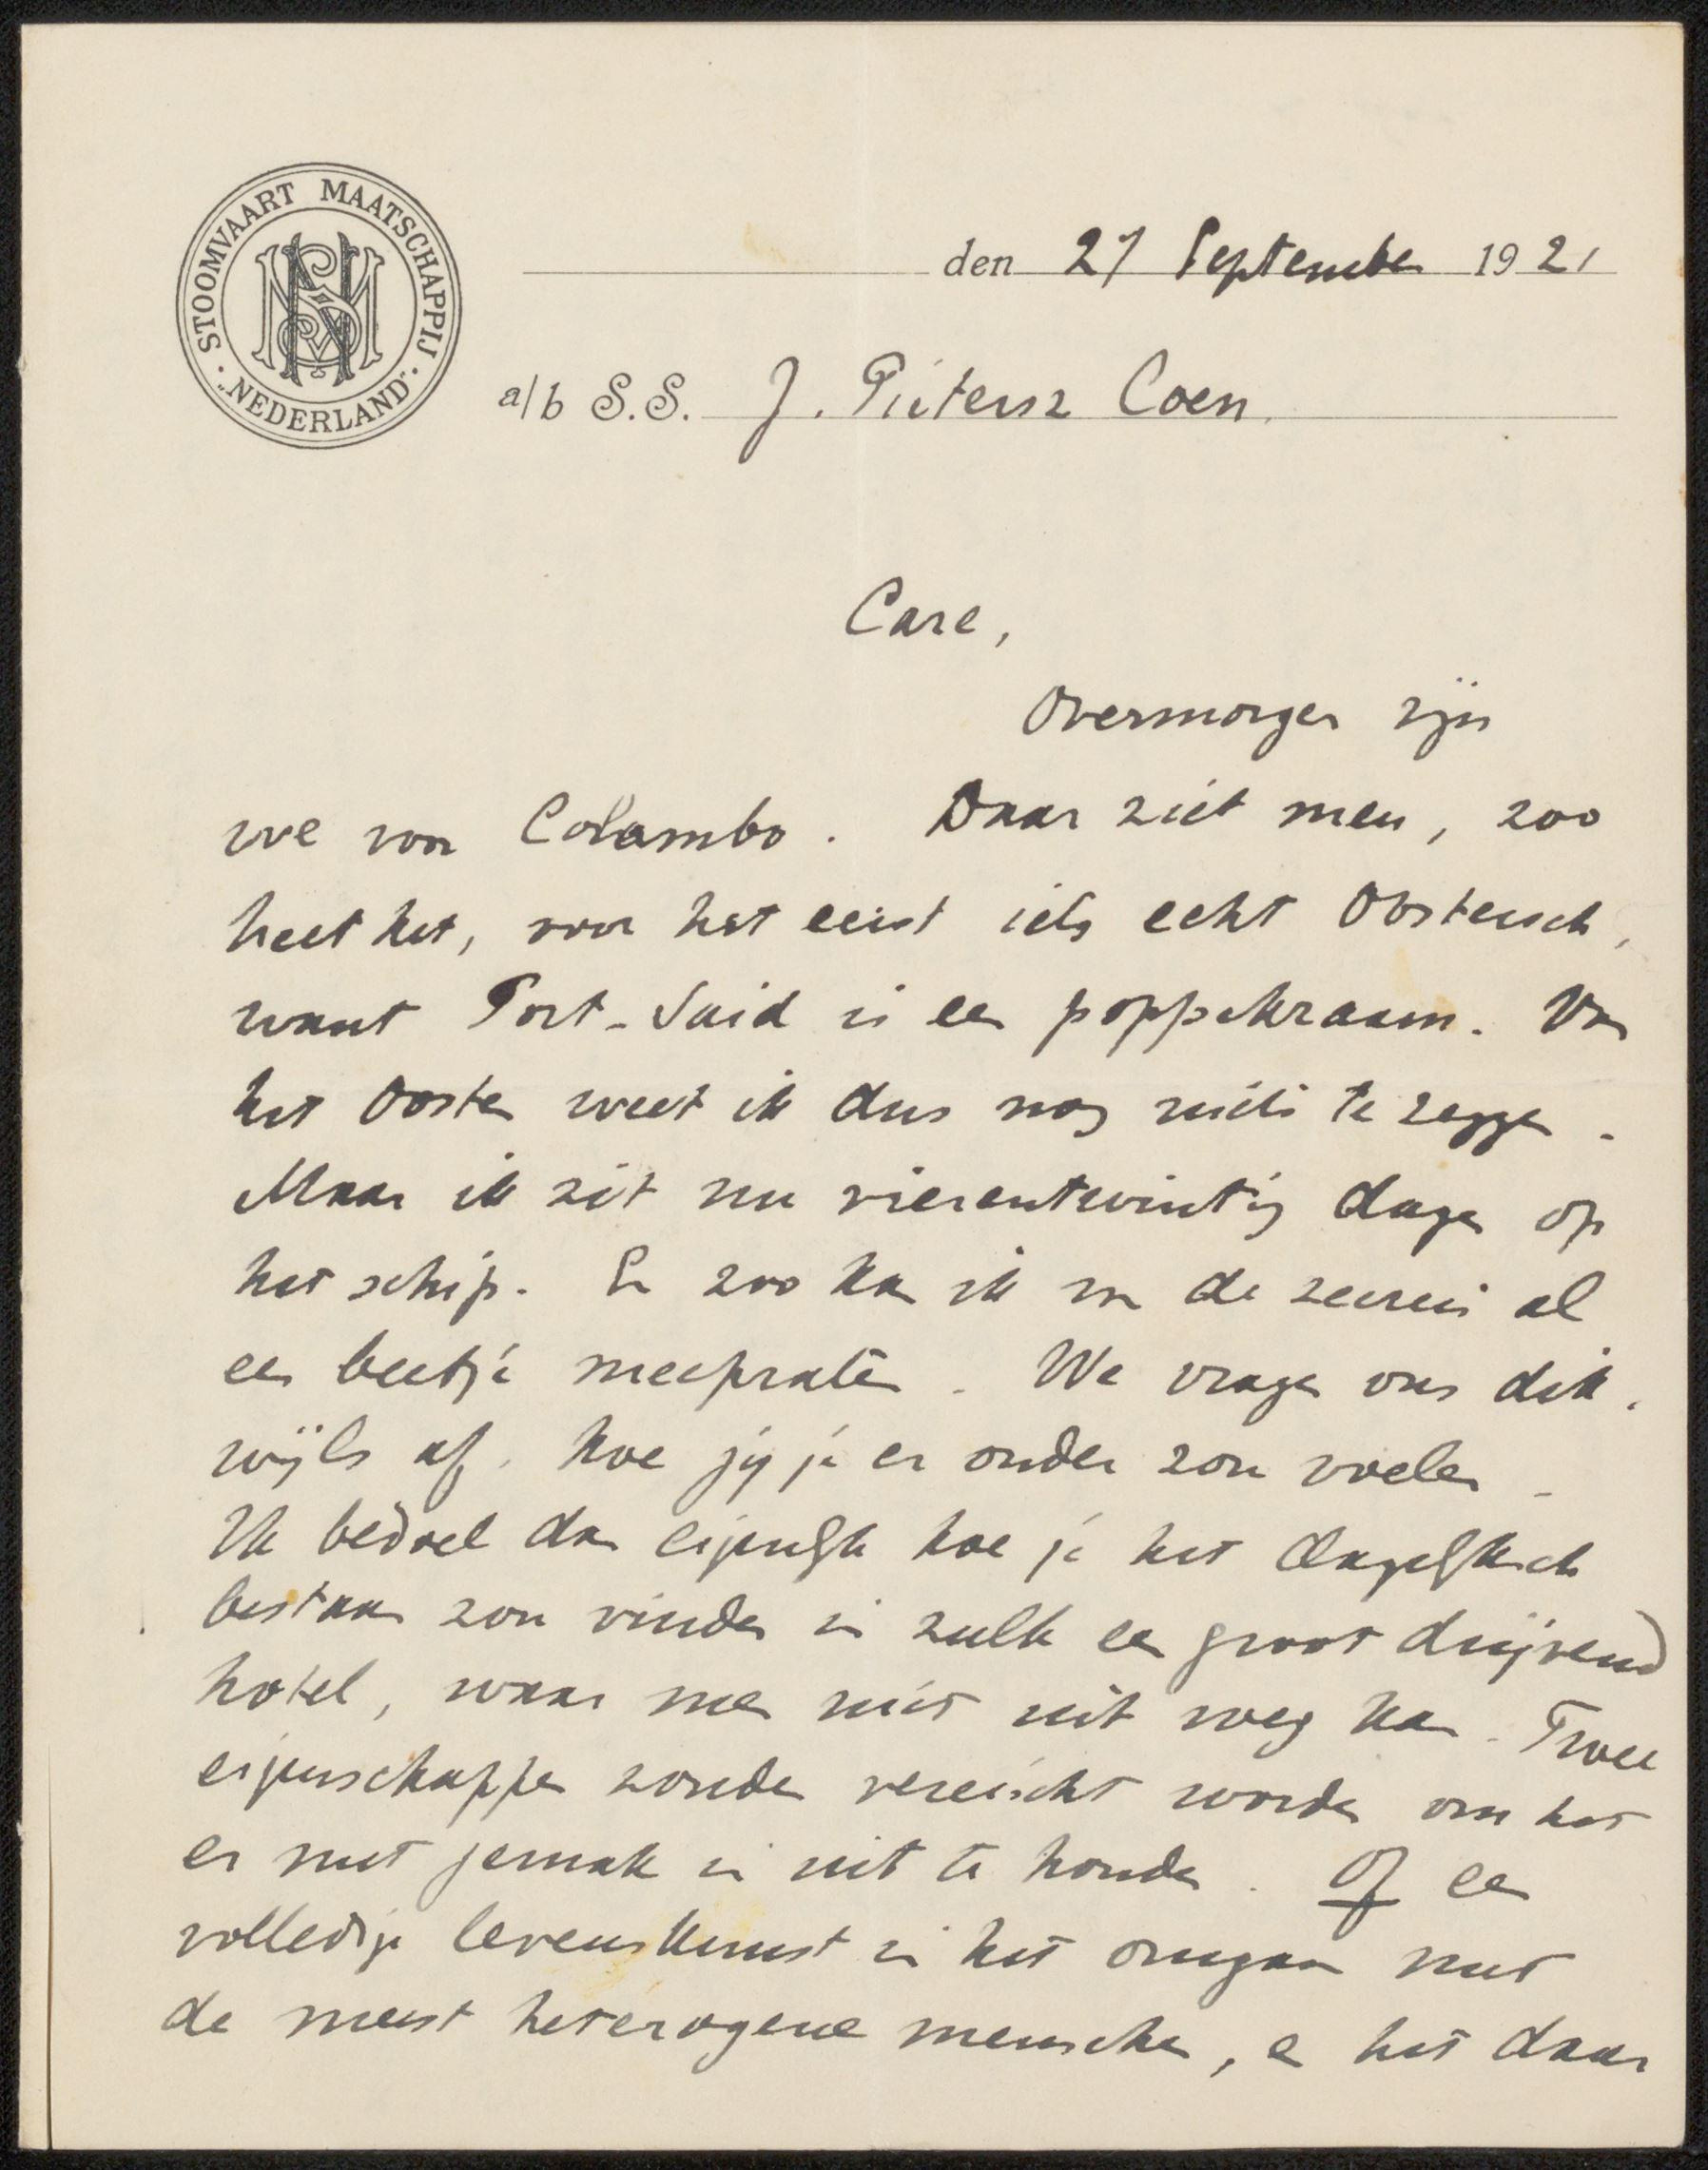 STOOMVAART MAATSCHAPPIJ
"NEDERLAND"
den 27 September 1921
a/b S.S. J. Pietersz Coen.
Care,
Overmorgen zijn
we voor Colombo. Daar ziet men, zoo
heet het, voor het eerst iets echt Oostersch,
want Port-Said is een poppekraam. Van
het Oosten weet ik dus nog niets te zeggen.
Maar ik zit nu vierentwintig dagen op
het schip. En zoo kan ik van de zeereis al
een beetje meepraten. We vragen ons dik-
wijls af, hoe jij je er onder zou voelen.
Ik bedoel dan eigenlijk hoe je het dagelijksch
bestaan zou vinden in zulk een groot drijvend
hotel, waar men niet uit weg kan. Twee
eigenschappen zouden vereischt worden om het
er met gemak in uit te houden. Of een
volledige levenskunst in het omgaan met
de meest heterogene menschen, en het daar